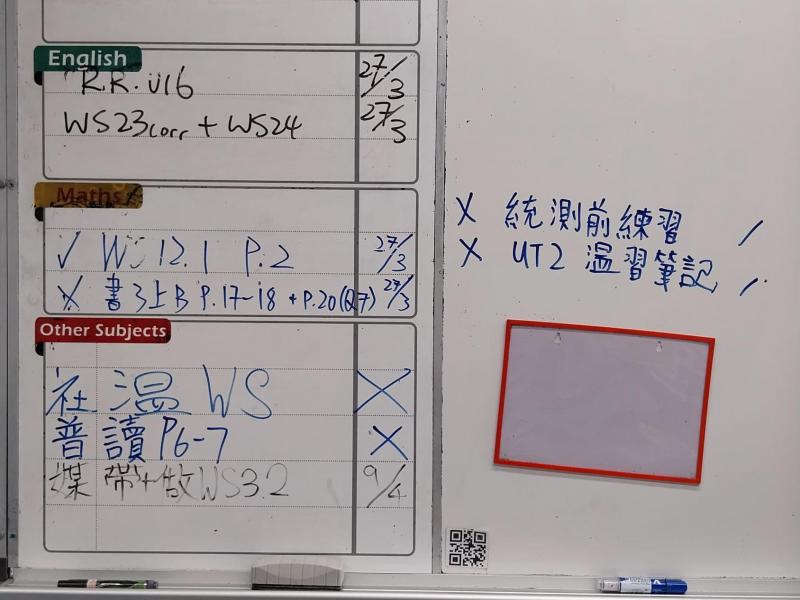 English
R.R. U16 27/3
WS23corr + WS24 27/3
Maths
✓ WS 12.1 P.2 27/3
X 書3上B P.17-18 + P.20(Q7) 27/3
Other Subjects
社 温 WS X
普 讀 P6-7 X
媒 帶+做WS3.2 9/4
X 統測前練習 /
X UT2 温習筆記 /